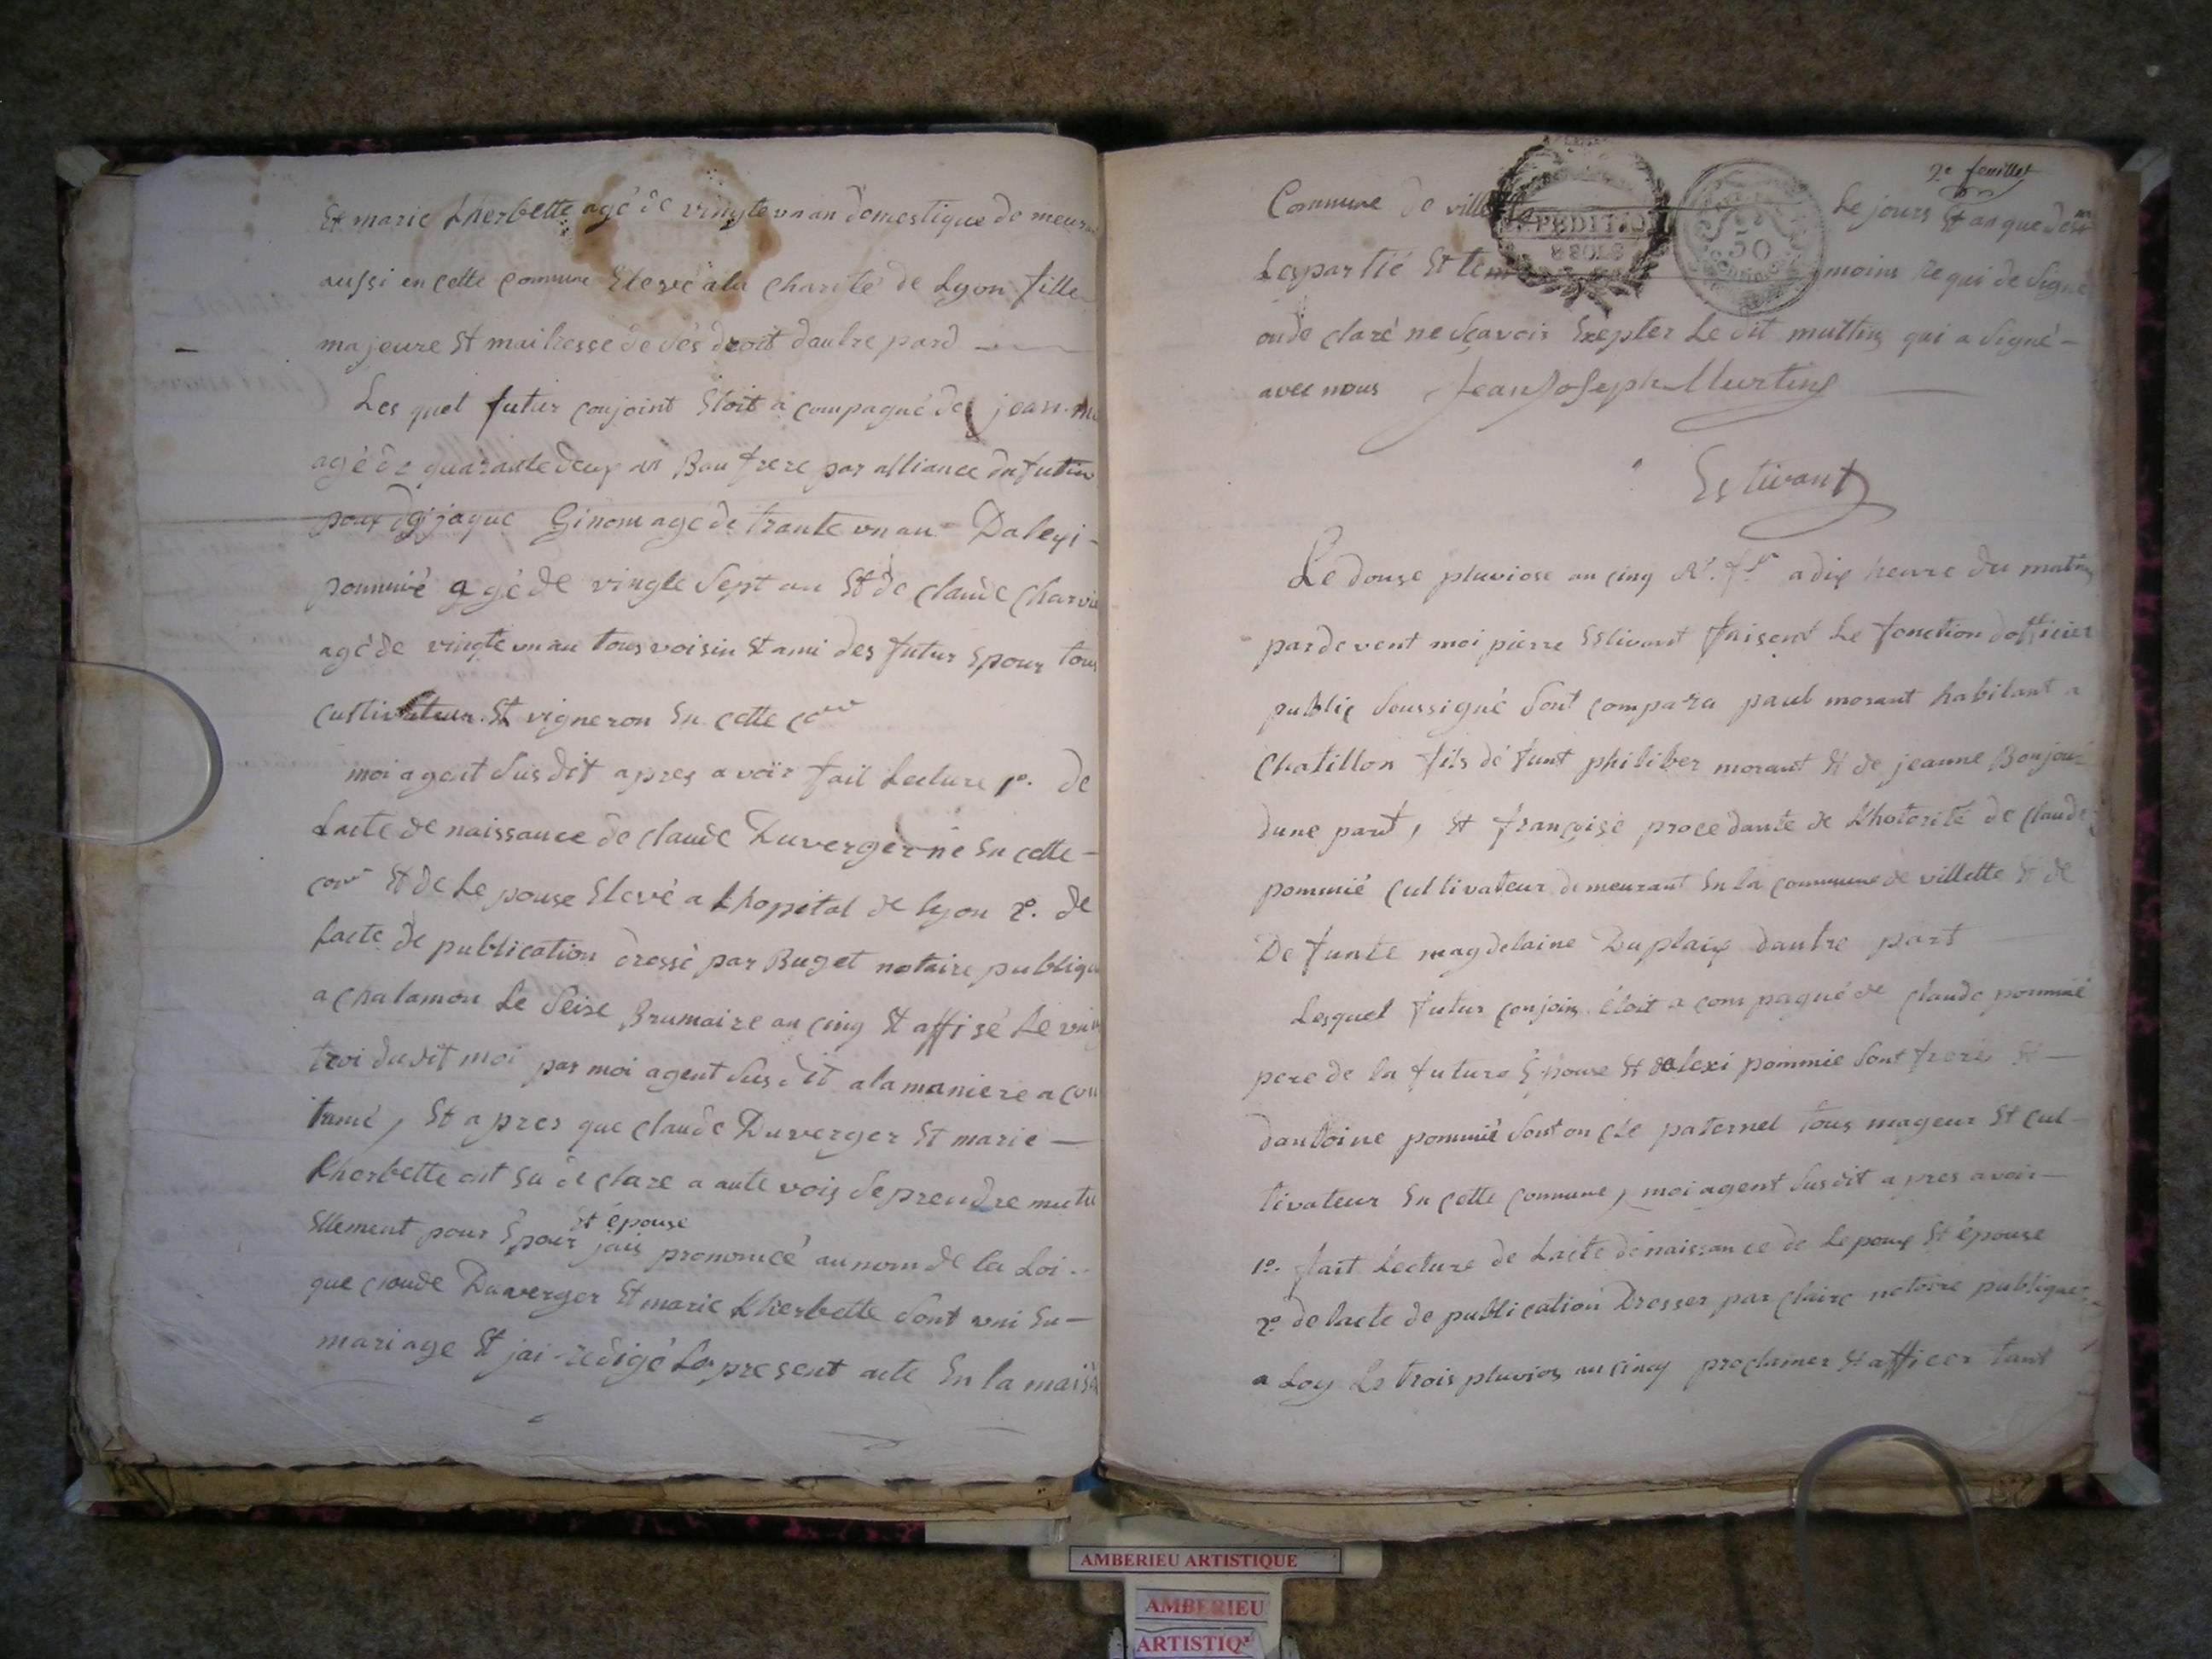 Et marie Lherbette agé de vingte un an domestique de meurant
aussi en cette commune Elevé a la charité de Lyon fille
majeure Et maitresse de sés droit dautre pard
Les quel futur conjoint Etoit a compagné de jean
agé de quarante deux an Bau frere par alliance du futur
poux de jaque Ginom agé de trante un an Daleyi
pommié agé de vingte sept an Et de claude charvi
agé de vingte un an tous voisin Et ami des futur Epoux tous
cultivateur Et vigneron En cette
moi agent susdit apres avoir fait Lecture 1º. de
Lacte de naissance de claude Duverger né En cette
Et de Le pouse Elevé a Lhopital de lyon 2º. de
Lacte de publication dressé par Buget notaire publique
a chalamon Le Seise Brumaire an cinq Et affisé Le vin
troi dudit moi par moi agent susdit a la maniere a cou
tumé, Et apres que claude Duverger Et marie
Lherbette ont Su de clare a aute voix se prendre mutu
Ellement pour Epoux et épouse jais prononcé au nom de la Loi
que claude Duverger Et marie Lherbette sont uni En
mariage Et jai redigé Le present acte En la mais
2e feuillet
Commune de ville Le jours Et an que
Les partié Et tem moins re qui de Signé
on de claré ne sçavoir Exepter Le dit muttin qui a signé
avec nous Jean Joseph Murtin
Estivant
Le douse pluviose an cinq R. a dix heure du matin
par devent moi pierre Estivant faisent Le fonction dofficier
public soussigné sont comparu paul morant habitant a
Chatillon fils dé funt philiber morant Et de jeanne Bonjour
dune part, Et françoise procedante de Lhotorité de claude
pommié cultivateur demeurant En la commune de villette Et de
De funte magdelaine Duplaix dautre part
Lesquel futur conjoin étoit a compagné de claude pommié
pere de la future Epouse Et dalexi pommie sont frere Et
dantoine pommié sont oncle paternel tous mageur Et cul-
tivateur En cette commune, moi agent susdit apres avoir
1º. fait Lecture de Lacte de naissance de Lepoux Et épouse
2º de lacte de publication Dresser par claire notoire publique
a Loy Le trois pluvios an cinq proclamer Et afficer tant
50
AMBERIEU ARTISTIQUE
AMBERIEU
ARTISTIQ